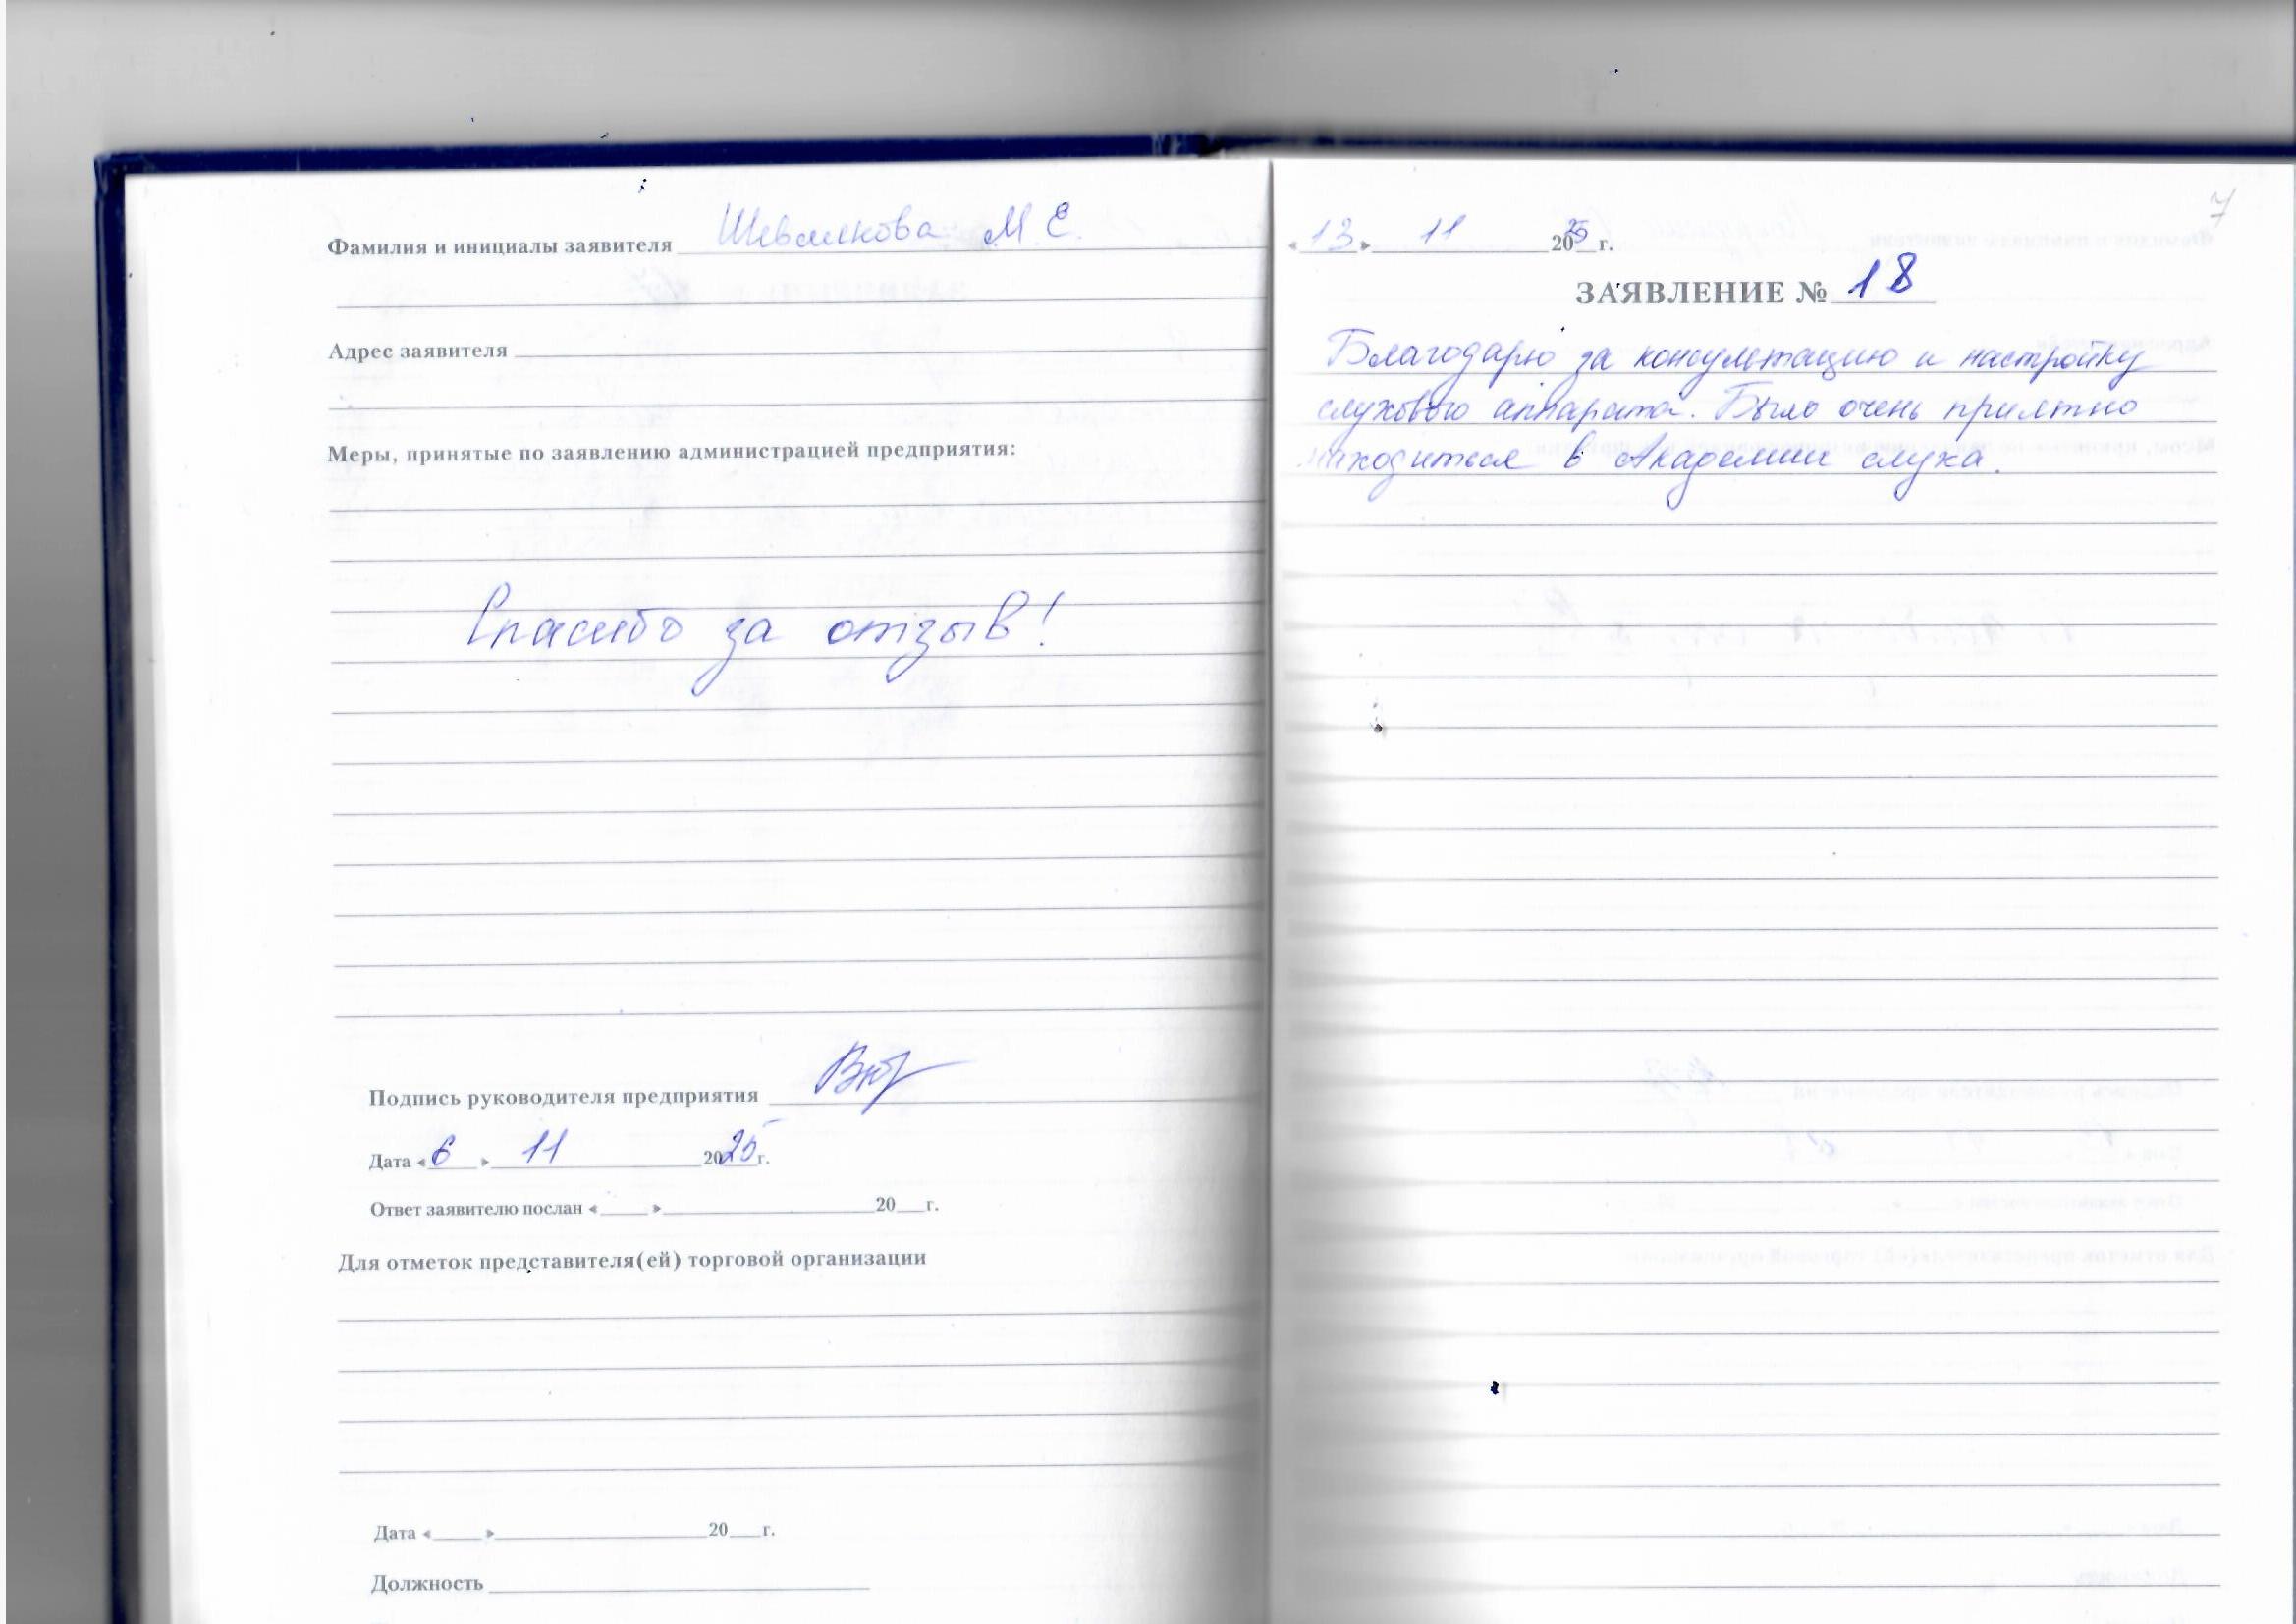 Фамилия и инициалы заявителя Шевалкова М Е.
Адрес заявителя
Меры, принятые по заявлению администрацией предприятия:
Спасибо за отзыв!
Подпись руководителя предприятия
Дата « 6 » 11 2025 г.
Ответ заявителю послан « » 20 г.
Для отметок представителя(ей) торговой организации
Дата « » 20 г.
Должность
7
« 13 » 11 2025 г.
ЗАЯВЛЕНИЕ № 18
Благодарю за консультацию и настройку
слухового аппарата. Было очень приятно
находиться в Академии слуха.